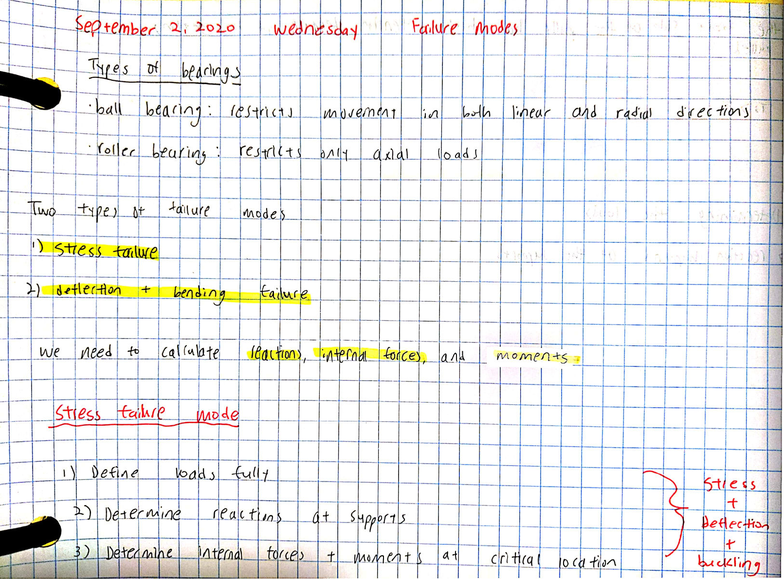 September 2, 2020 Wednesday Failure Modes
Types of bearings
· ball bearing: restricts movement in both linear and radial directions
· roller bearing: restricts only axial loads
Two types of failure modes
1) Stress failure
2) deflection + bending failure
We need to calculate reactions, internal forces, and moments
Stress failure mode
1) Define loads fully
2) Determine reactions at supports
3) Determine internal forces + moments at critical location
Stress
+
Deflection
+
buckling